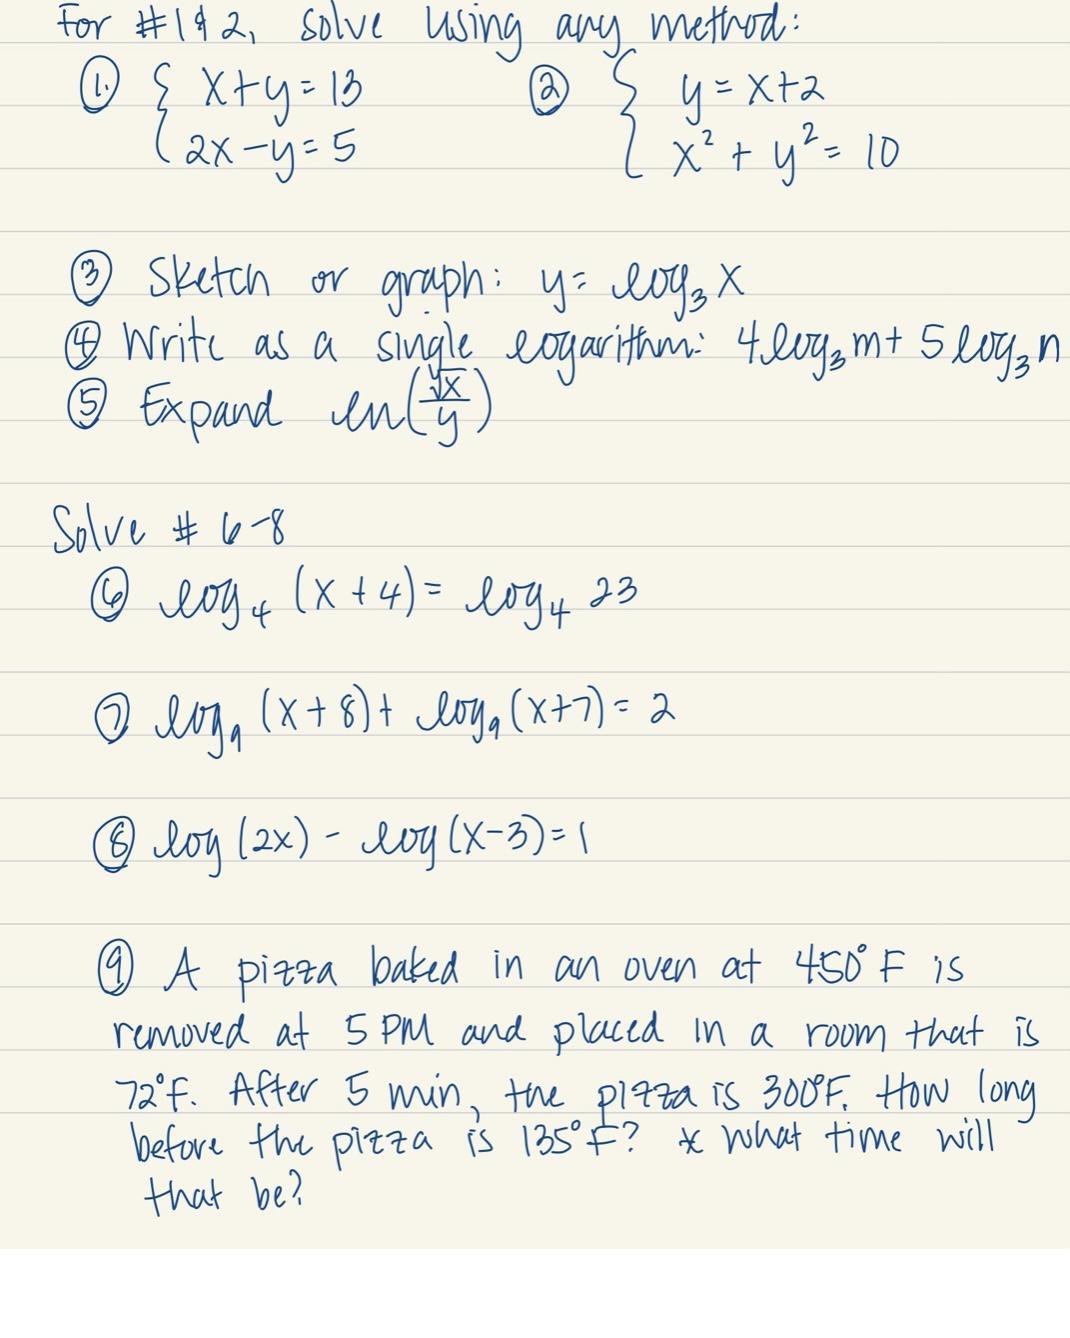 For #1 & 2, solve using any method:
① { x+y = 13   ② { y = x+2
2x-y = 5   x² + y² = 10
③ Sketch or graph: y = log₃ x
④ Write as a single logarithm: 4 log₃ m + 5 log₃ n
⑤ Expand ln(√x/y)
Solve # 6-8
⑥ log₄ (x + 4) = log₄ 23
⑦ log₉ (x + 8) + log₉ (x+7) = 2
⑧ log (2x) - log (x-3) = 1
⑨ A pizza baked in an oven at 450° F is
removed at 5 PM and placed in a room that is
72°F. After 5 min, the pizza is 300°F. How long
before the pizza is 135°F? * What time will
that be?